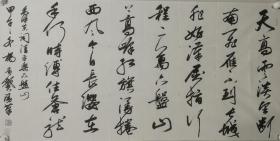 天高雲淡望斷
南飛雁不到長城
非好漢屈指行
程二萬六盤山
上高峰紅旗漫捲
西風今日長纓在
手何時縛住蒼龍
毛澤東詞清平樂六盤山
甲午